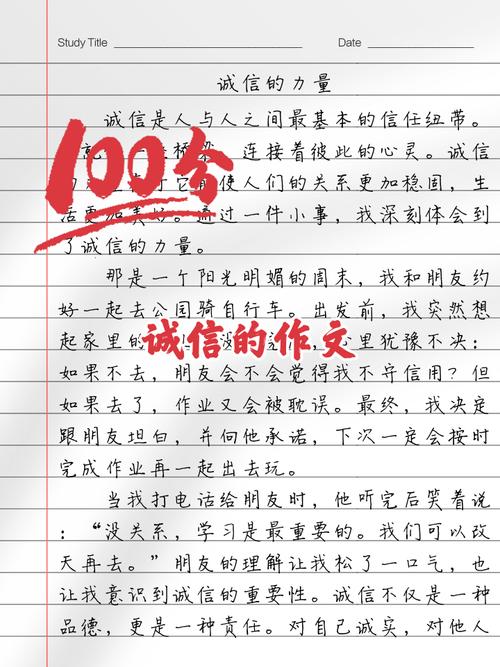 Study Title
Date
诚信的力量
诚信是人与人之间最基本的信任纽带。
连接着彼此的心灵。诚信
使人们的关系更加稳固，生
活更加 通过一件小事，我深刻体会到
了诚信的力量。
100分
那是一个阳光明媚的周末，我和朋友约
好一起去公园骑自行车。出发前，我突然想
起家里的 心里犹豫不决：
诚信的作文
如果不去，朋友会不会觉得我不守信用？但
如果去了，作业又会被耽误。最终，我决定
跟朋友坦白，并向他承诺，下次一定会按时
完成作业再一起出去玩。
当我打电话给朋友时，他听完后笑着说
：“没关系，学习是最重要的。我们可以改
天再去。”朋友的理解让我松了一口气，也
让我意识到诚信的重要性。诚信不仅是一种
品德，更是一种责任。对自己诚实，对他人